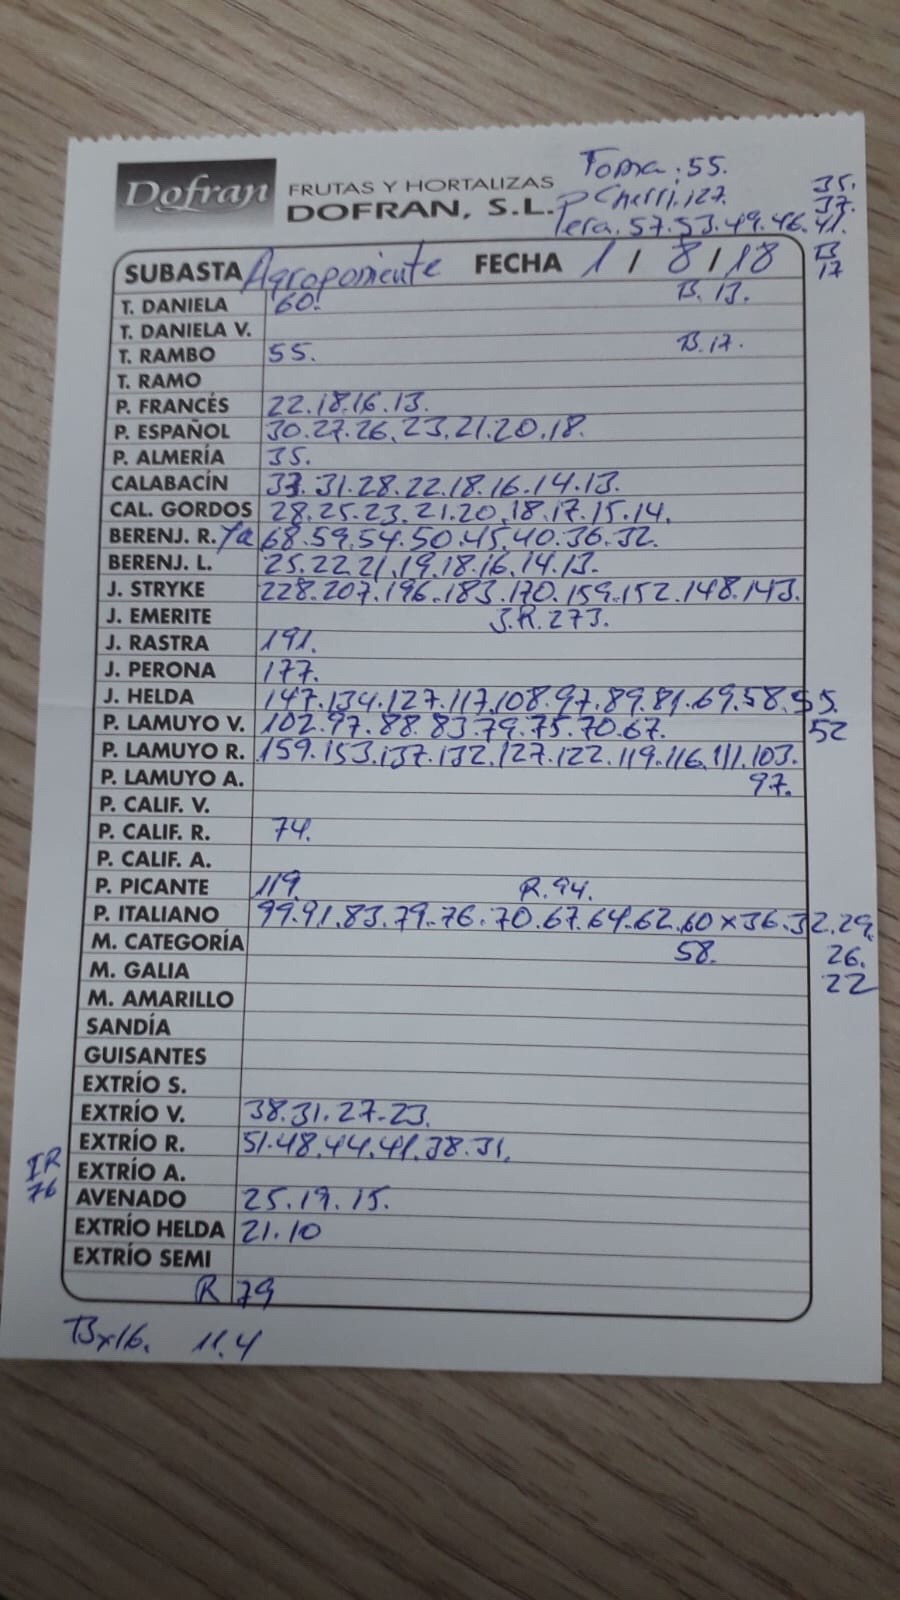 Dofran FRUTAS Y HORTALIZAS
DOFRAN, S.L.
Toma: 55.
P Cherri, 127.
Pera. 57.53.49.46.41.
35.
37.
B
17
SUBASTA Agroponiente FECHA 1 / 8 / 18
T. DANIELA 60. B. 13.
T. DANIELA V.
T. RAMBO 55. B. 17.
T. RAMO
P. FRANCÉS 22.18.16.13.
P. ESPAÑOL 30.27.26.23.21.20.18.
P. ALMERÍA 35.
CALABACÍN 33.31.28.22.18.16.14.13.
CAL. GORDOS 28.25.23.21.20.18.17.15.14.
BERENJ. R. Ya 68.59.54.50.45.40.36.32.
BERENJ. L. 25.22.21.19.18.16.14.13.
J. STRYKE 228.207.196.183.170.159.152.148.143.
J. EMERITE S.R. 273.
J. RASTRA 191.
J. PERONA 177.
J. HELDA 147.134.127.117.108.97.89.81.69.58.55.
52
P. LAMUYO V. 102.97.88.83.79.75.70.67.
P. LAMUYO R. 159.153.137.132.127.122.119.116.111.103.
97.
P. LAMUYO A.
P. CALIF. V.
P. CALIF. R. 74.
P. CALIF. A.
P. PICANTE 119. R. 94.
P. ITALIANO 99.91.83.79.76.70.67.64.62.60 x 36.32.29.
58. 26.
22
M. CATEGORÍA
M. GALIA
M. AMARILLO
SANDÍA
GUISANTES
EXTRÍO S.
EXTRÍO V. 38.31.27.23.
EXTRÍO R. 51.48.44.41.38.31.
IR
76
EXTRÍO A.
AVENADO 25.19.15.
EXTRÍO HELDA 21.10
EXTRÍO SEMI
R 79
Bx16. 11.4